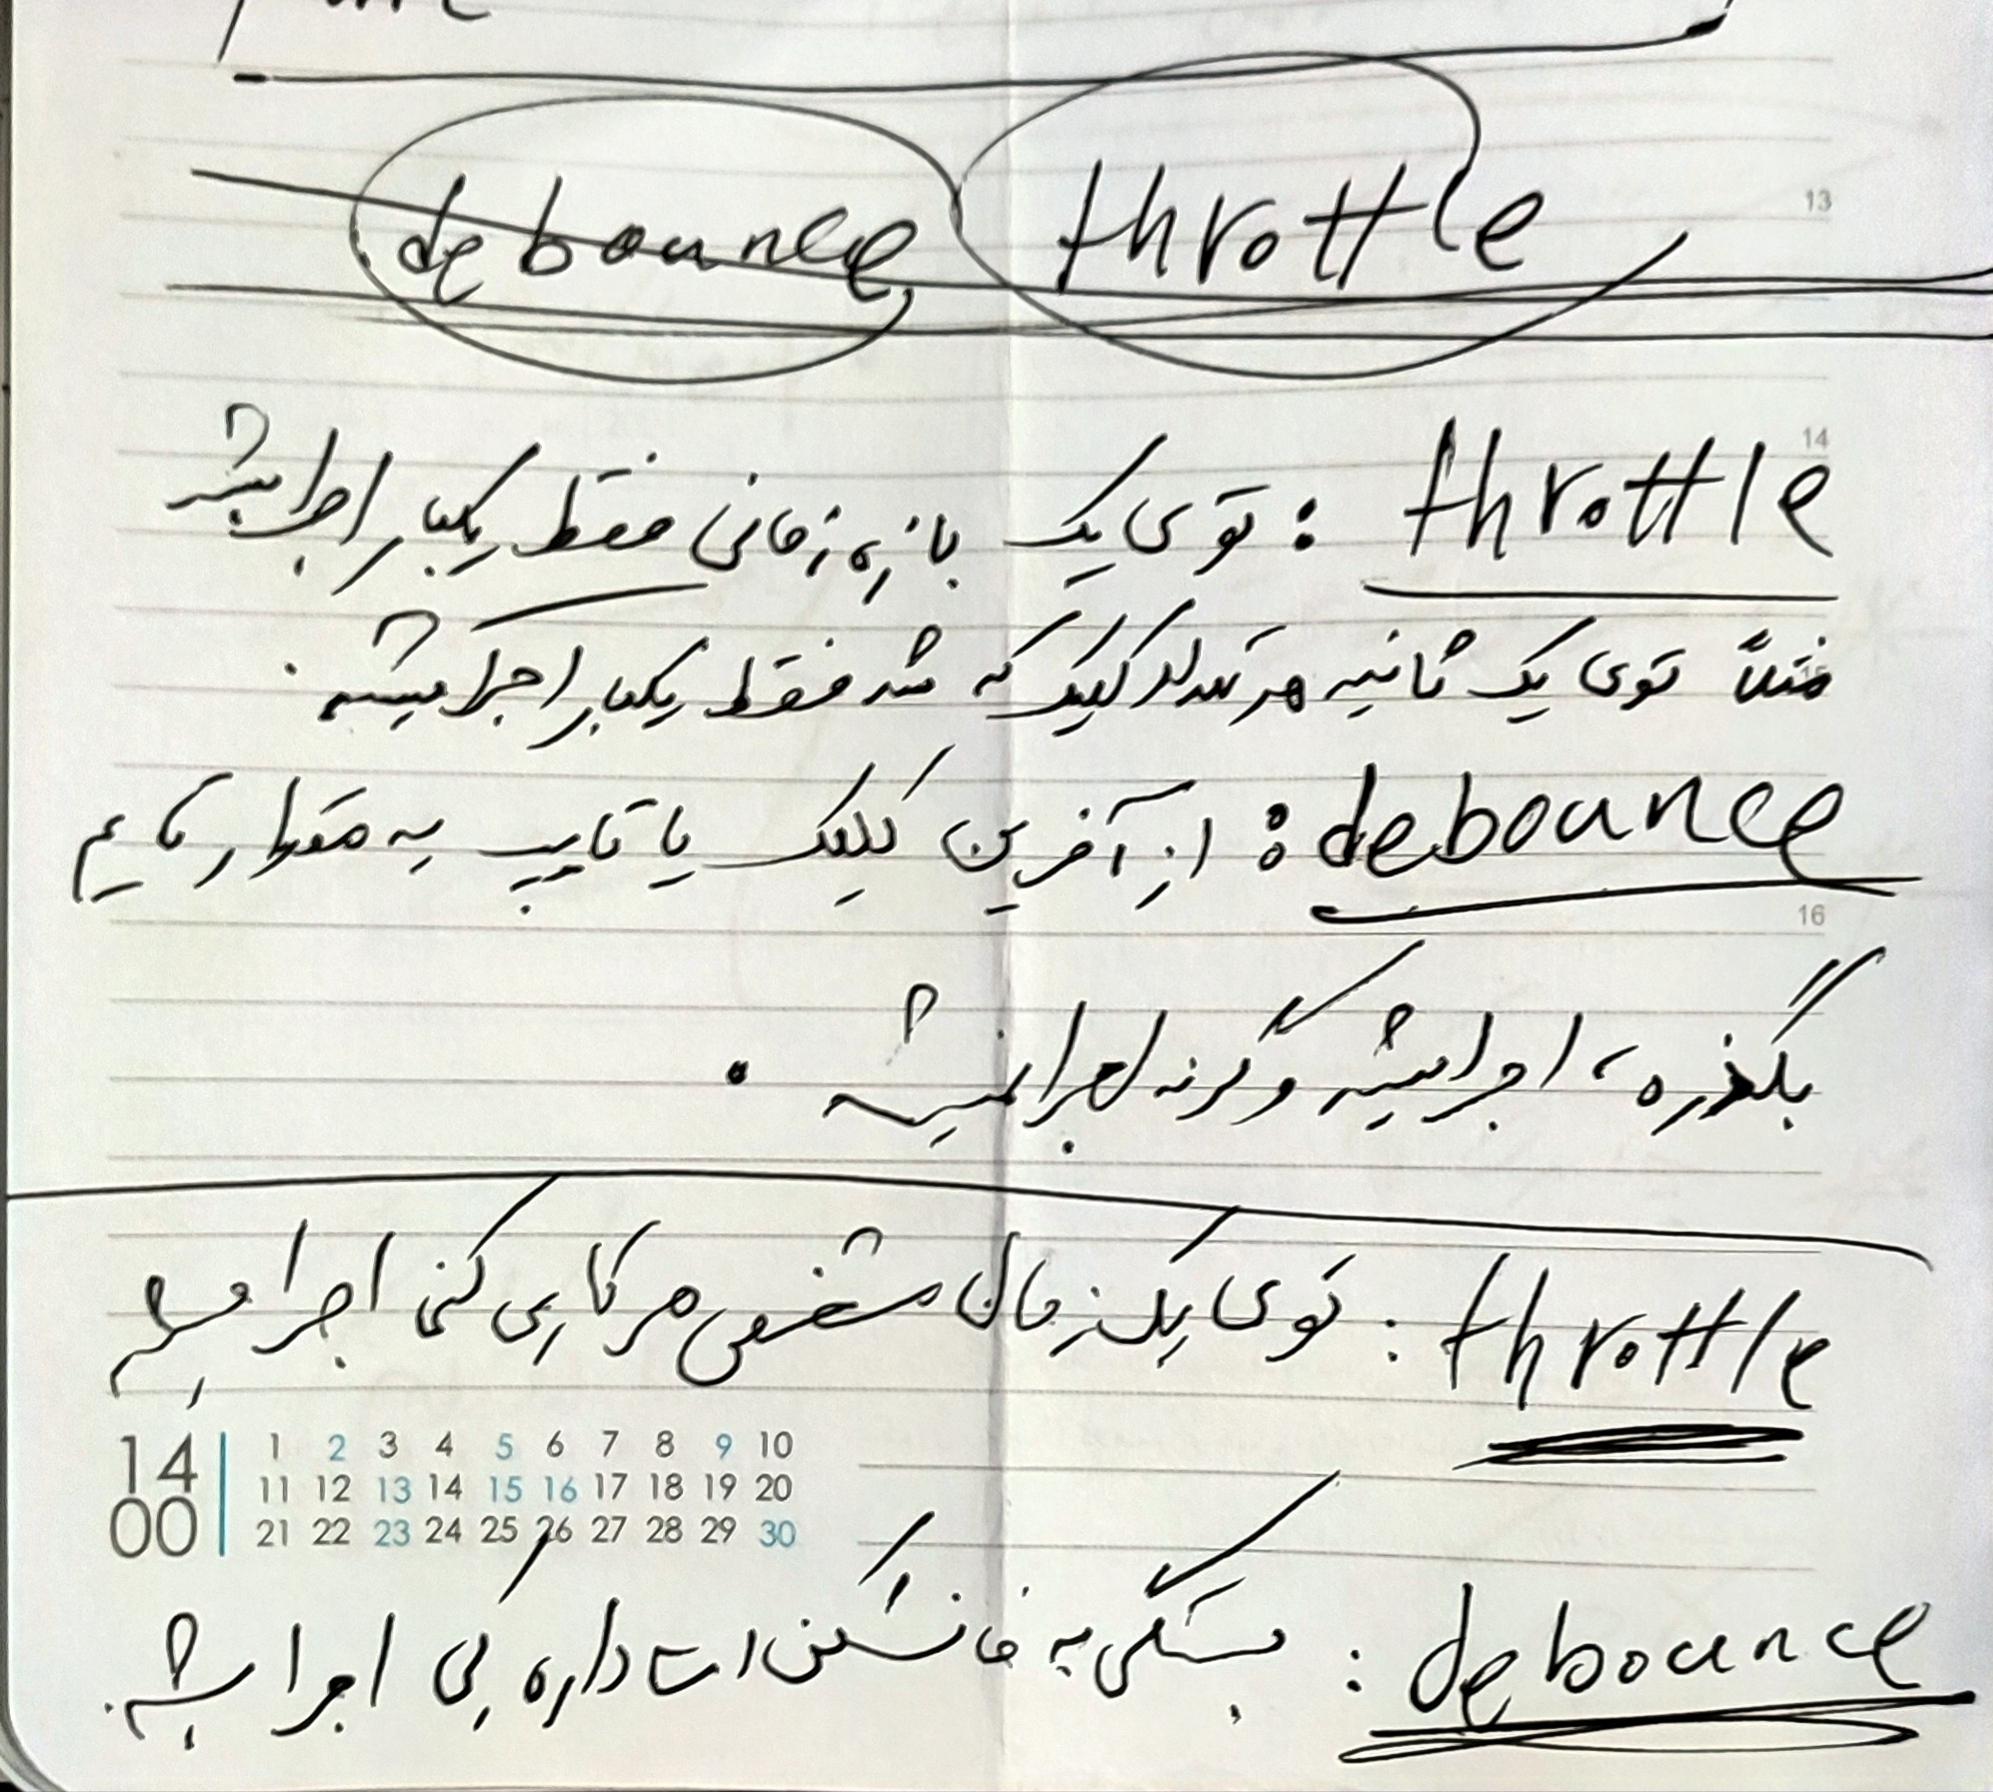 debounce throttle
13
14
throttle : توی یک بازه زمانی فقط یکبار اجرا بشه
مثلاً توی یک ثانیه هر تعداد کلیک که شد فقط یکبار اجرا میشه .
debounce : از آخرین کلیک یا تایپ یه مقدار تایم
16
بگذره ، اجرا میشه وگرنه اجرا نمیشه .
throttle : توی یک زمان مشخصی هر کاری کنی اجرا میشه
1400
1 2 3 4 5 6 7 8 9 10
11 12 13 14 15 16 17 18 19 20
21 22 23 24 25 26 27 28 29 30
debounce : بستگی به فانکشن ات داره کی اجرا بشه .